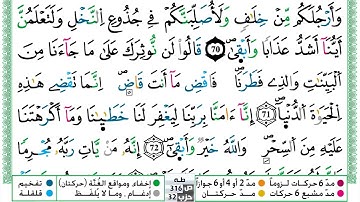 وَأَرْجُلَكُم مِّنْ خِلَٰفٍ وَلَأُصَلِّبَنَّكُمْ فِي جُذُوعِ النَّخْلِ وَلَتَعْلَمُنَّ
أَيُّنَا أَشَدُّ عَذَابًا وَأَبْقَىٰ 70 قَالُوا لَن نُّوثِرَكَ عَلَىٰ مَا جَاءَنَا مِنَ
الْبَيِّنَٰتِ وَالَّذِي فَطَرَنَا فَاقْضِ مَا أَنتَ قَاضٍ إِنَّمَا تَقْضِي هَٰذِهِ
الْحَيَوٰةَ الدُّنْيَا 71 إِنَّا ءَامَنَّا بِرَبِّنَا لِيَغْفِرَ لَنَا خَطَٰيَٰنَا وَمَا أَكْرَهْتَنَا
عَلَيْهِ مِنَ السِّحْرِ وَاللَّهُ خَيْرٌ وَأَبْقَىٰ 72 إِنَّهُ مَن يَاتِ رَبَّهُ مُجْرِمًا
مدّ 6 حركات لزوماً مدّ 2 أو 4 أو 6 جوازاً طه ص 316 حزب 32 إخفاء ومواقع الغُنَّة (حركتان) تفخيم
مدّ مشبع 6 حركات مدّ حركتان إدغام، وما لا يُلفظ قلقلة